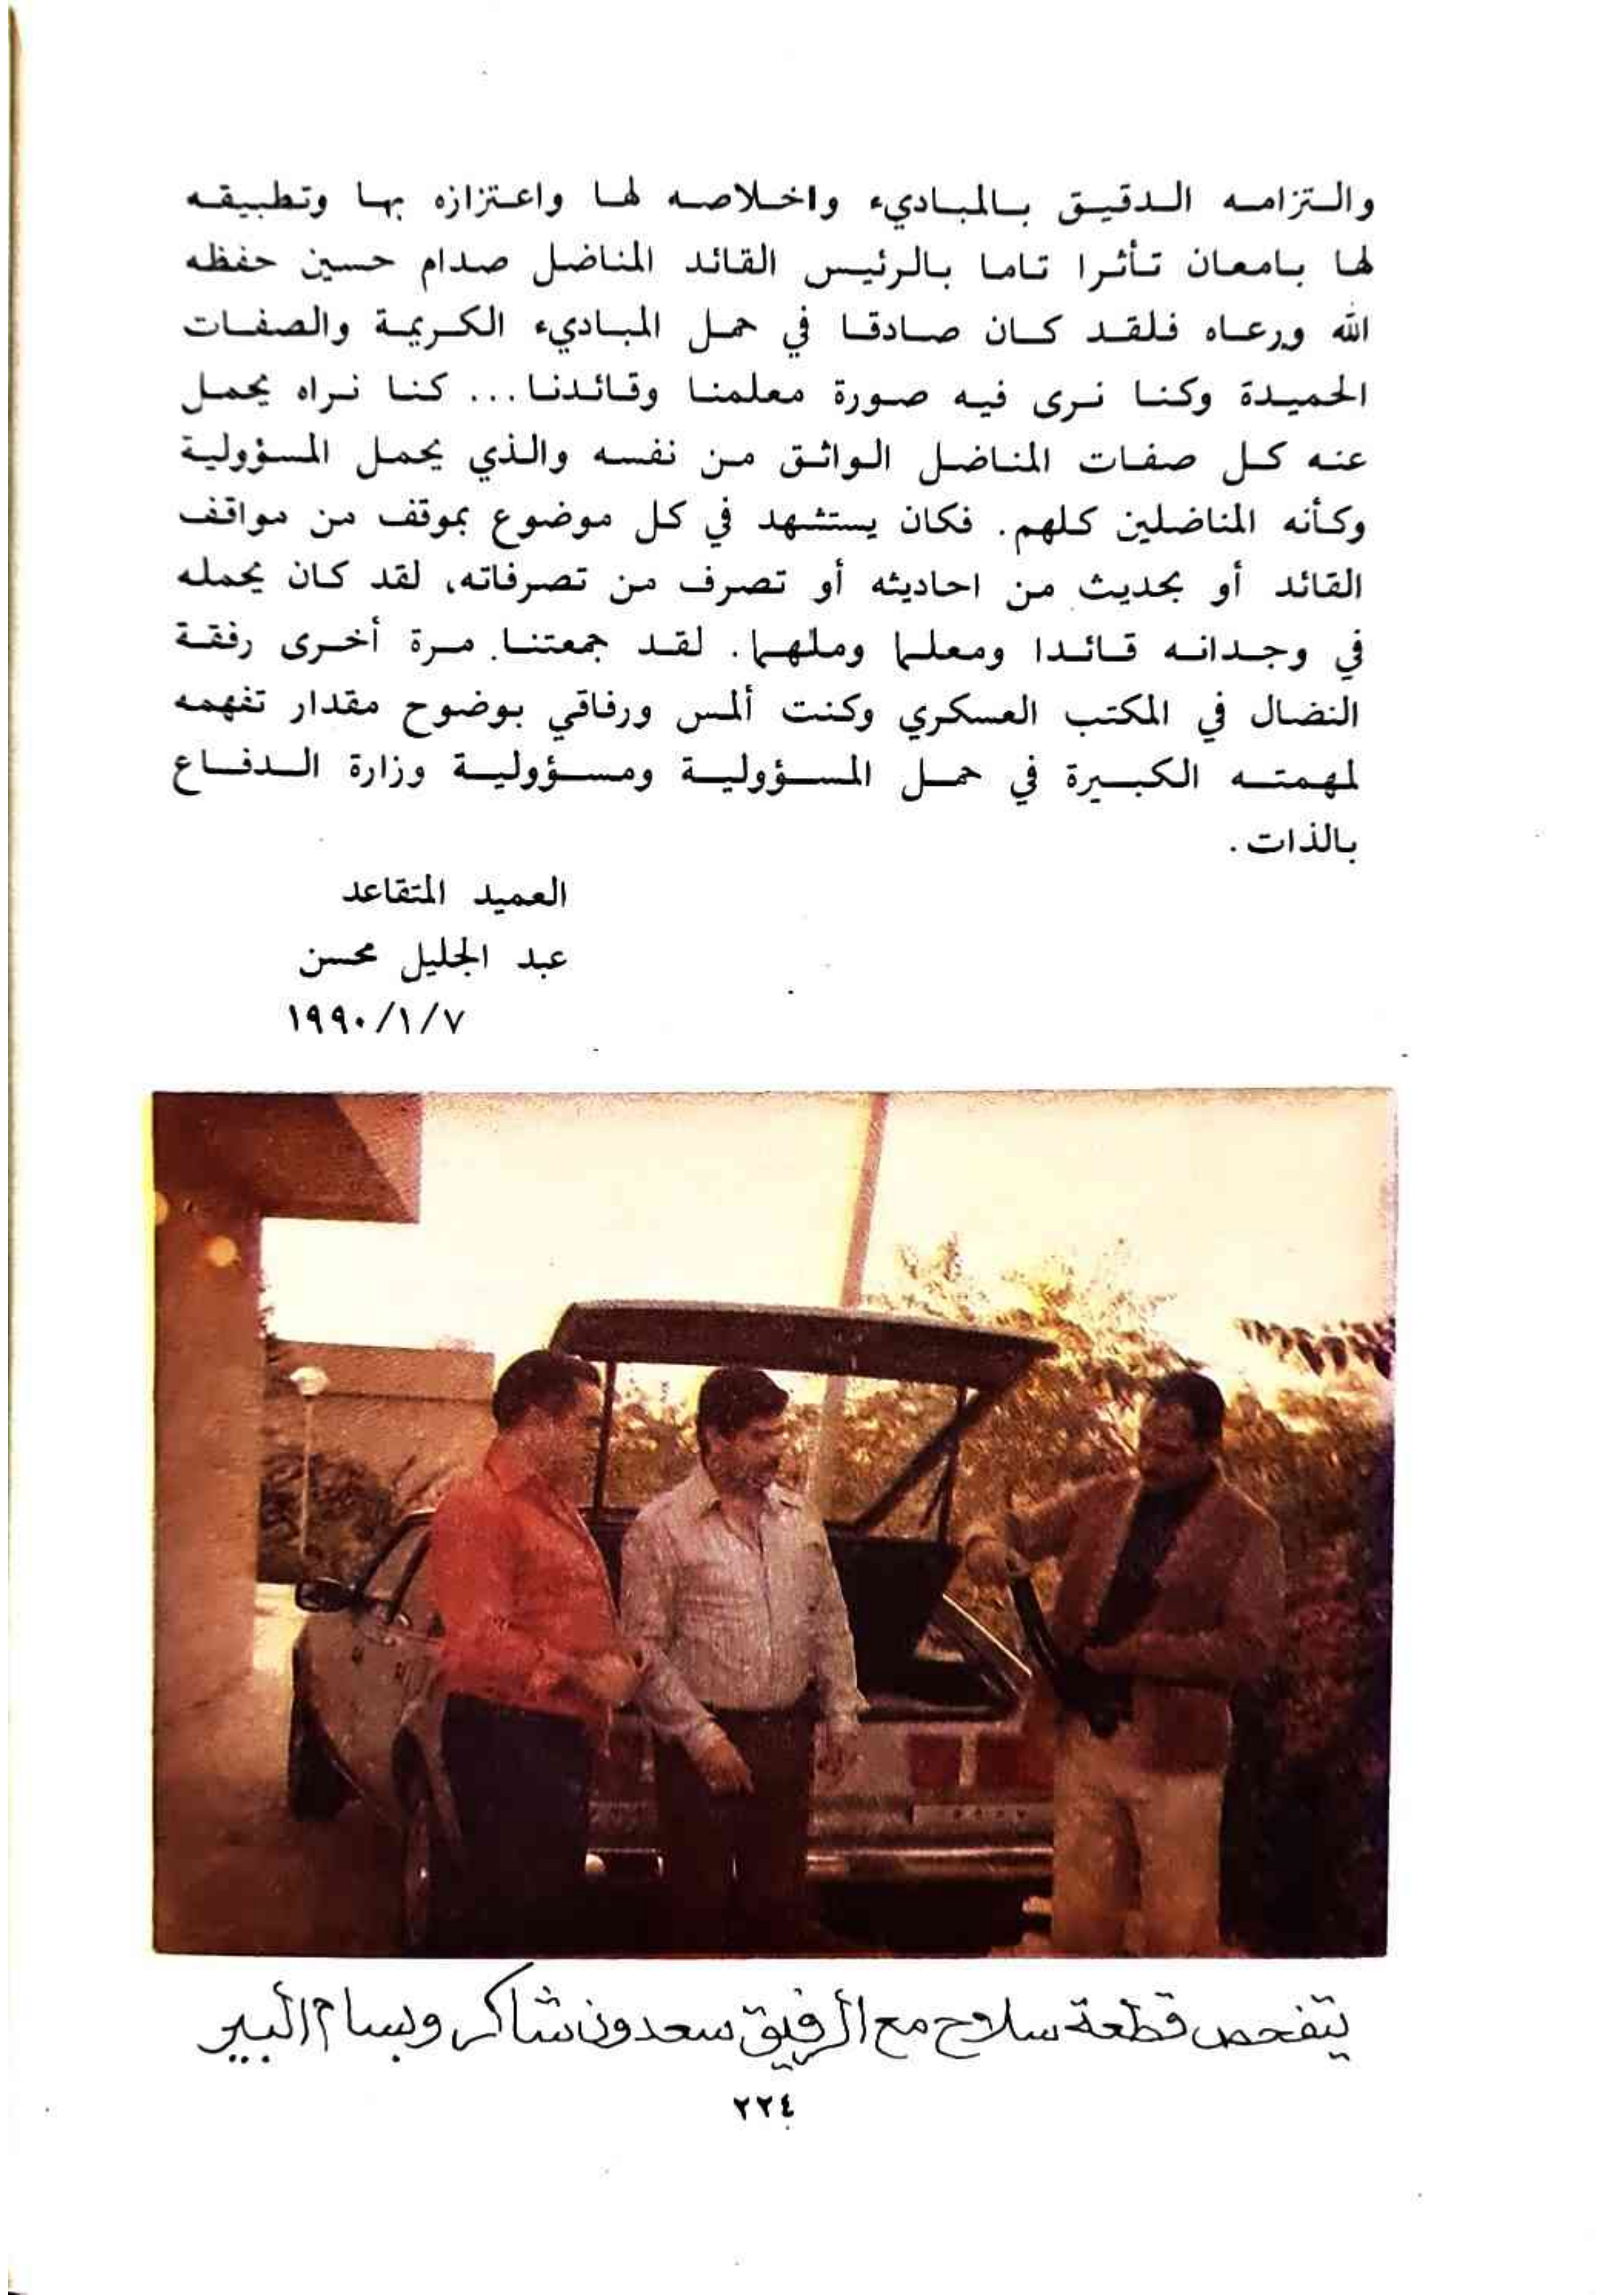 والتزامه الدقيق بالمباديء واخلاصه لها واعتزازه بها وتطبيقه
لها بامعان تأثرا تاما بالرئيس القائد المناضل صدام حسين حفظه
الله ورعاه فلقد كان صادقا في حمل المباديء الكريمة والصفات
الحميدة وكنا نرى فيه صورة معلمنا وقائدنا... كنا نراه يحمل
عنه كل صفات المناضل الواثق من نفسه والذي يحمل المسؤولية
وكأنه المناضلين كلهم. فكان يستشهد في كل موضوع بموقف من مواقف
القائد أو بحديث من احاديثه أو تصرف من تصرفاته، لقد كان يحمله
في وجدانه قائدا ومعلما وملهما. لقد جمعتنا مرة أخرى رفقة
النضال في المكتب العسكري وكنت ألمس ورفاقي بوضوح مقدار تفهمه
لمهمته الكبيرة في حمل المسؤولية ومسؤولية وزارة الدفاع
بالذات.
العميد المتقاعد
عبد الجليل محسن
١٩٩٠/١/٧
يتفحص قطعة سلاح مع الرفيق سعدون شاكر وبسام البير
٢٢٤